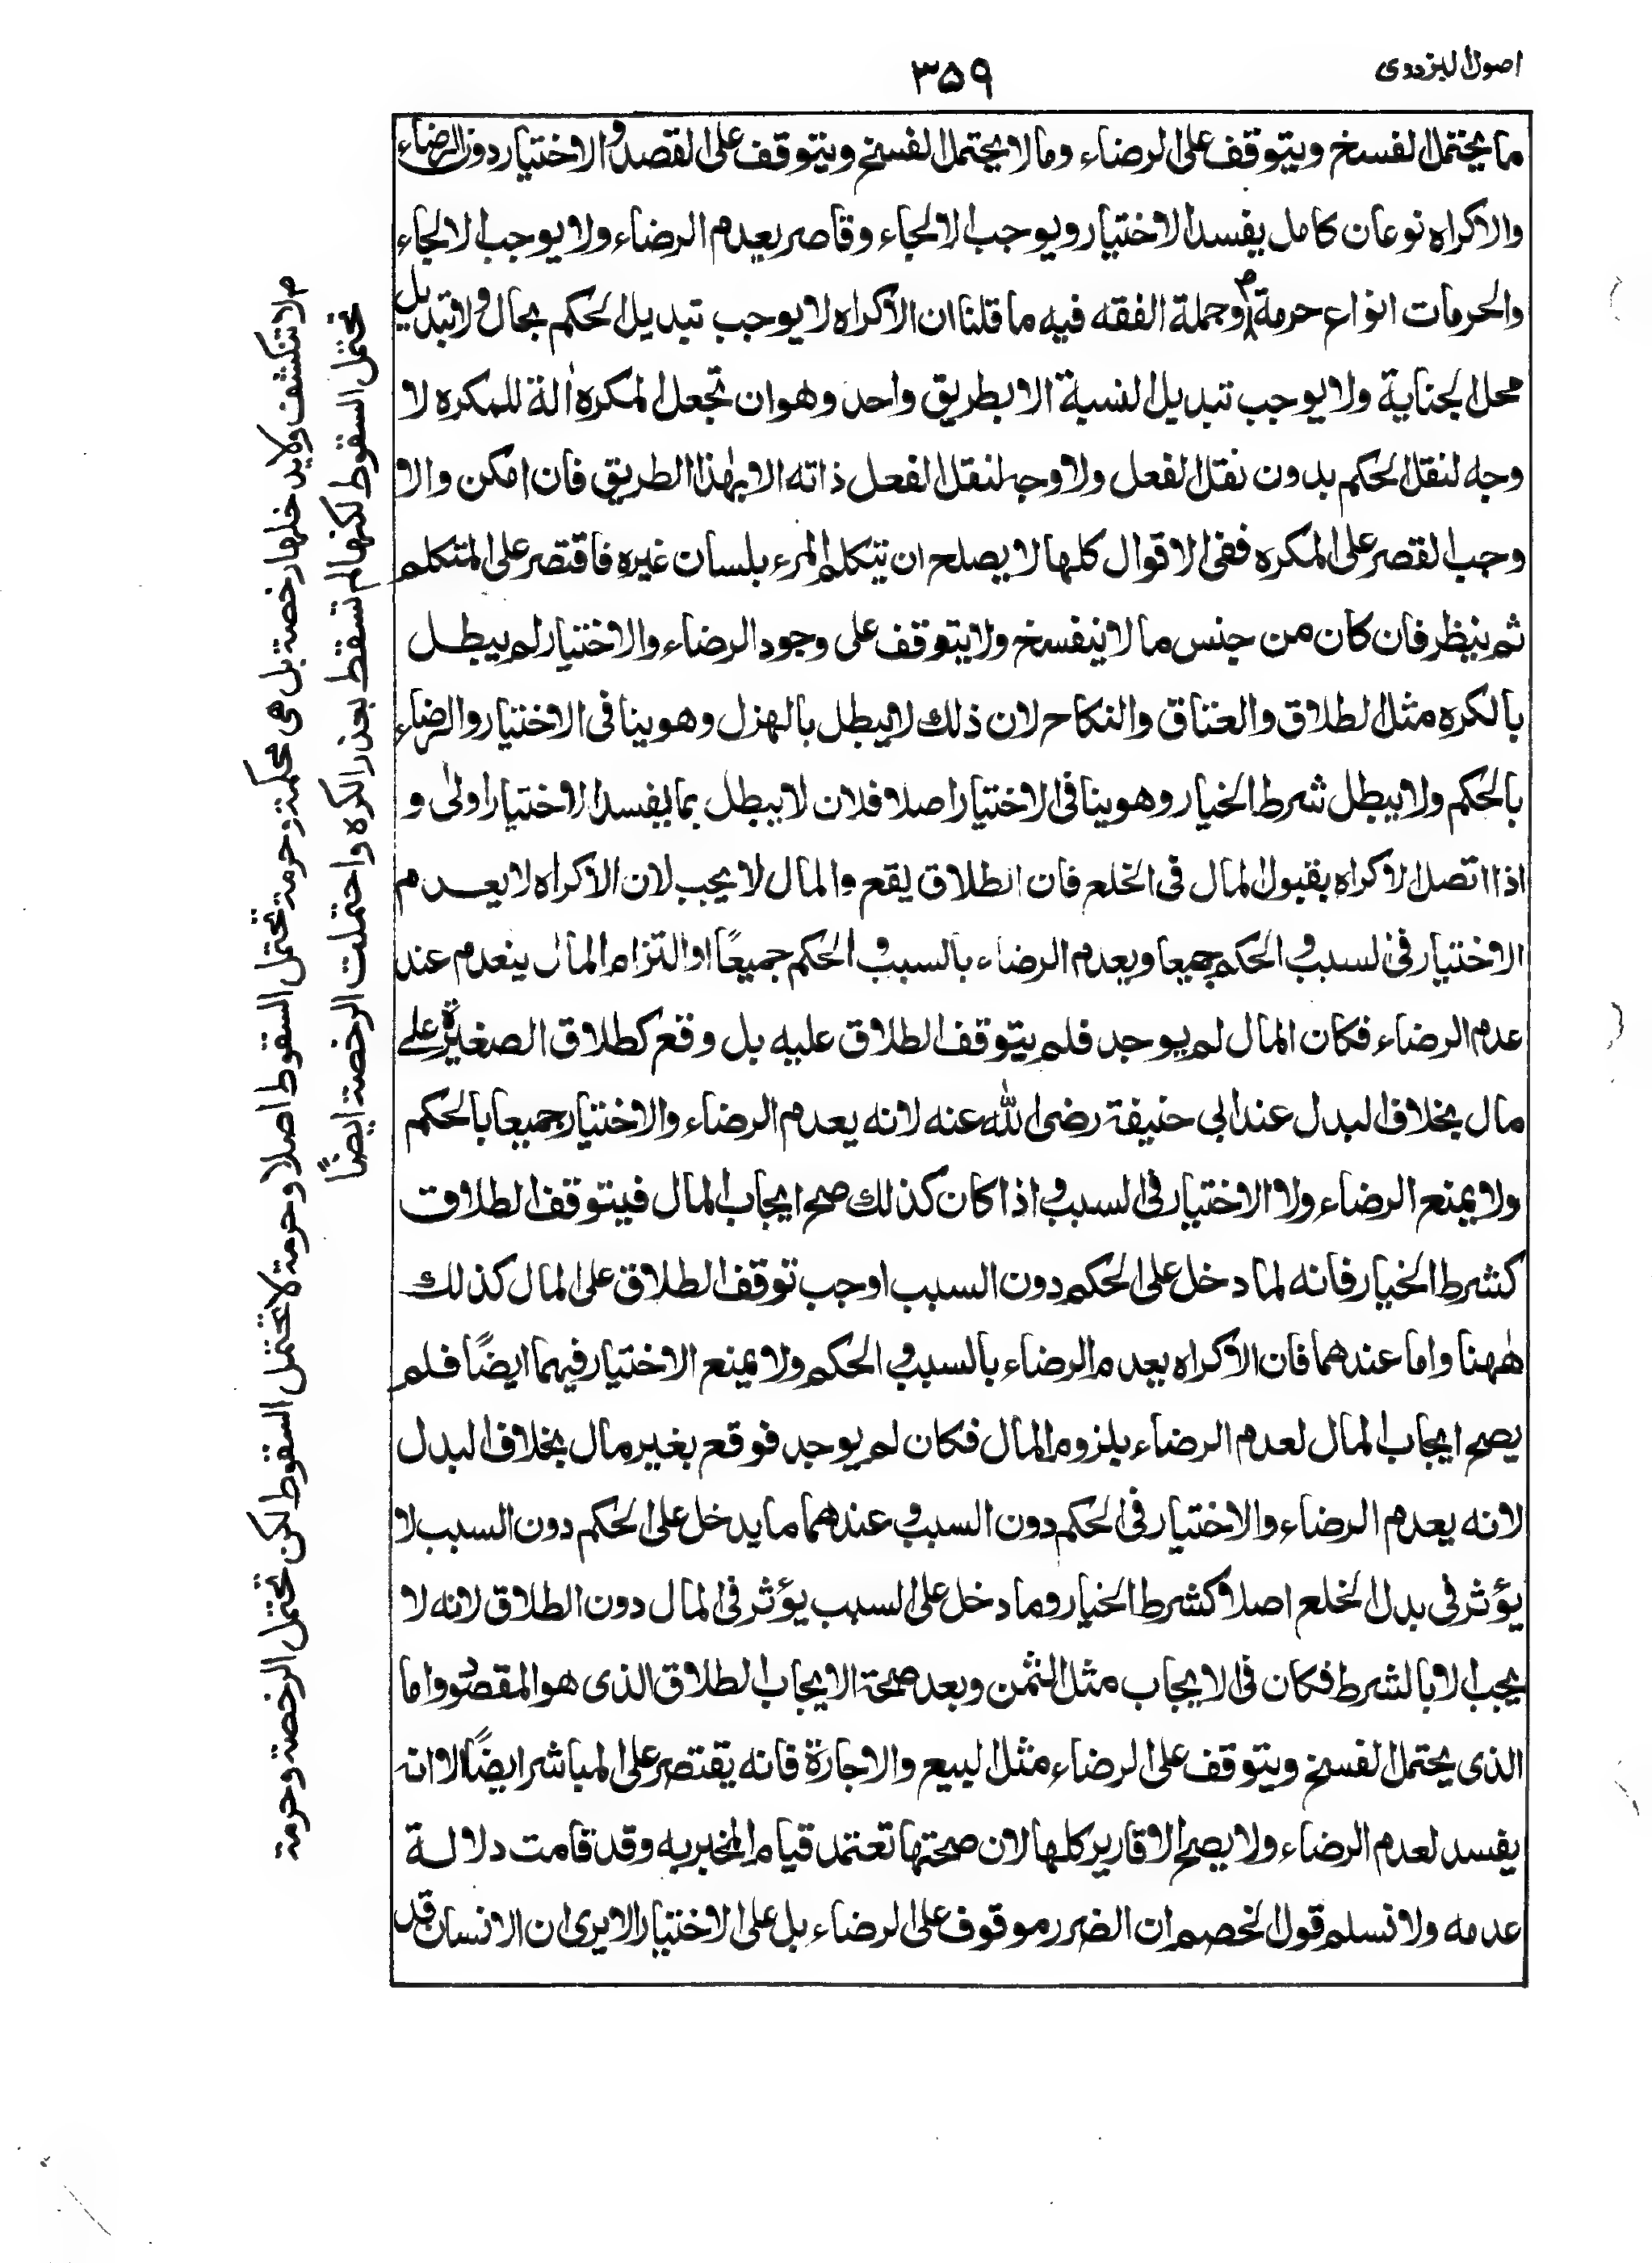 اصول البزدوى
٣٥٩
ما يحتمل الفسخ ويتوقف على الرضاء وما لا يحتمل الفسخ ويتوقف على القصد والاختيار دون الرضاء
والاكراه نوعان كامل يفسد الاختيار ويوجب الالجاء وقاصر يعدم الرضاء ولا يوجب الالجاء
والحرمات انواع حرمة وجملة الفقه فيه ما قلنا ان الاكراه لا يوجب تبديل الحكم بحال ولا تبديل
محل الجناية ولا يوجب تبديل النسبة الا بطريق واحد وهو ان تجعل المكره اٰلة للمكره لا
وجه لنقل الحكم بدون نقل الفعل ولا وجه لنقل الفعل ذاته الا بهٰذا الطريق فان امكن والا
وجب القصر على المكره ففى الاقوال كلها لا يصلح ان يتكلم المرء بلسان غيره فاقتصر على المتكلم
ثم ينظر فان كان من جنس ما لا ينفسخ ولا يتوقف على وجود الرضاء والاختيار لم يبطل
بالكره مثل الطلاق والعتاق والنكاح لان ذلك لا يبطل بالهزل وهو ينافى الاختيار والرضاء
بالحكم ولا يبطل شرط الخيار وهو ينافى الاختيار اصلا فلان لا يبطل بما يفسد الاختيار اولىٰ و
اذا اتصل الاكراه بقبول المال فى الخلع فان الطلاق يقع والمال لا يجب لان الاكراه لا يعدم
الاختيار فى السبب والحكم جميعا ويعدم الرضاء بالسبب والحكم جميعًا او التزام المال ينعدم عند
عدم الرضاء فكان المال لم يوجد فلم يتوقف الطلاق عليه بل وقع كطلاق الصغيرة على
مال بخلاف البدل عند ابى حنيفة رضى الله عنه لانه يعدم الرضاء والاختيار جميعا بالحكم
ولا يمنع الرضاء ولا الاختيار فى السبب واذا كان كذلك صح ايجاب المال فيتوقف الطلاق
كشرط الخيار فانه لما دخل على الحكم دون السبب اوجب توقف الطلاق على المال كذلك
هٰهنا واما عندهما فان الاكراه يعدم الرضاء بالسبب والحكم ولا يمنع الاختيار فيهما ايضًا فلم
يصح ايجاب المال لعدم الرضاء بلزوم المال فكان لم يوجد فوقع بغير مال بخلاف البدل
لانه يعدم الرضاء والاختيار فى الحكم دون السبب وعندهما ما يدخل على الحكم دون السبب لا
يؤثر فى بدل الخلع اصلا كشرط الخيار وما دخل على السبب يؤثر فى المال دون الطلاق لانه لا
يجب الا بالشرط فكان فى الايجاب مثل الثمن وبعد صحة الايجاب الطلاق الذى هو المقصود واما
الذى يحتمل الفسخ ويتوقف على الرضاء مثل البيع والاجارة فانه يقتصر على المباشر ايضًا الا انه
يفسد لعدم الرضاء ولا يصح الاقارير كلها لان صحتها تعتمد قيام المخبر به وقد قامت دلالة
عدمه ولا نسلم قول الخصم ان الضرر موقوف على الرضاء بل على الاختيار الا يرى ان الانسان قد
لا تنكشف ولا يدخلها رخصة بل هى محكمة وحرمة تحتمل السقوط اصلا وحرمة لا تحتمل السقوط لكن تحتمل الرخصة وحرمة
تحتمل السقوط لكنها لم تسقط بعذر الكره واحتملت الرخصة ايضًا